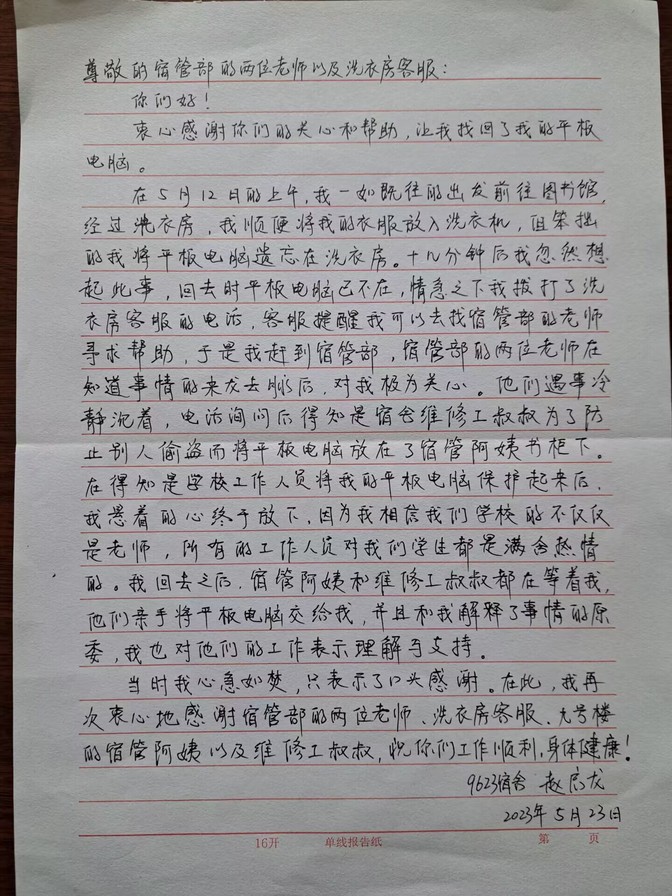 尊敬的宿管部的两位老师以及洗衣房客服：
你们好！
衷心感谢你们的关心和帮助，让我找回了我的平板
电脑。
在5月12日的上午，我一如既往的出发前往图书馆，
经过洗衣房，我顺便将我的衣服放入洗衣机，但笨拙
的我将平板电脑遗忘在洗衣房。十几分钟后我忽然想
起此事，回去时平板电脑已不在，情急之下我拨打了洗
衣房客服的电话，客服提醒我可以去找宿管部的老师
寻求帮助，于是我赶到宿管部，宿管部的两位老师在
知道事情的来龙去脉后，对我极为关心。他们遇事冷
静沉着，电话询问后得知是宿舍维修工叔叔为了防
止别人偷盗而将平板电脑放在了宿管阿姨书柜下。
在得知是学校工作人员将我的平板电脑保护起来后，
我悬着的心终于放下，因为我相信我们学校的不仅仅
是老师，所有的工作人员对我们学生都是满含热情
的。我回去之后，宿管阿姨和维修工叔叔都在等着我，
他们亲手将平板电脑交给我，并且和我解释了事情的原
委，我也对他们的工作表示理解与支持。
当时我心急如焚，只表示了口头感谢。在此，我再
次衷心地感谢宿管部的两位老师、洗衣房客服、九号楼
的宿管阿姨以及维修工叔叔，祝你们工作顺利，身体健康！
9623宿舍 赵启龙
2023年5月23日
16开 单线报告纸 第 页